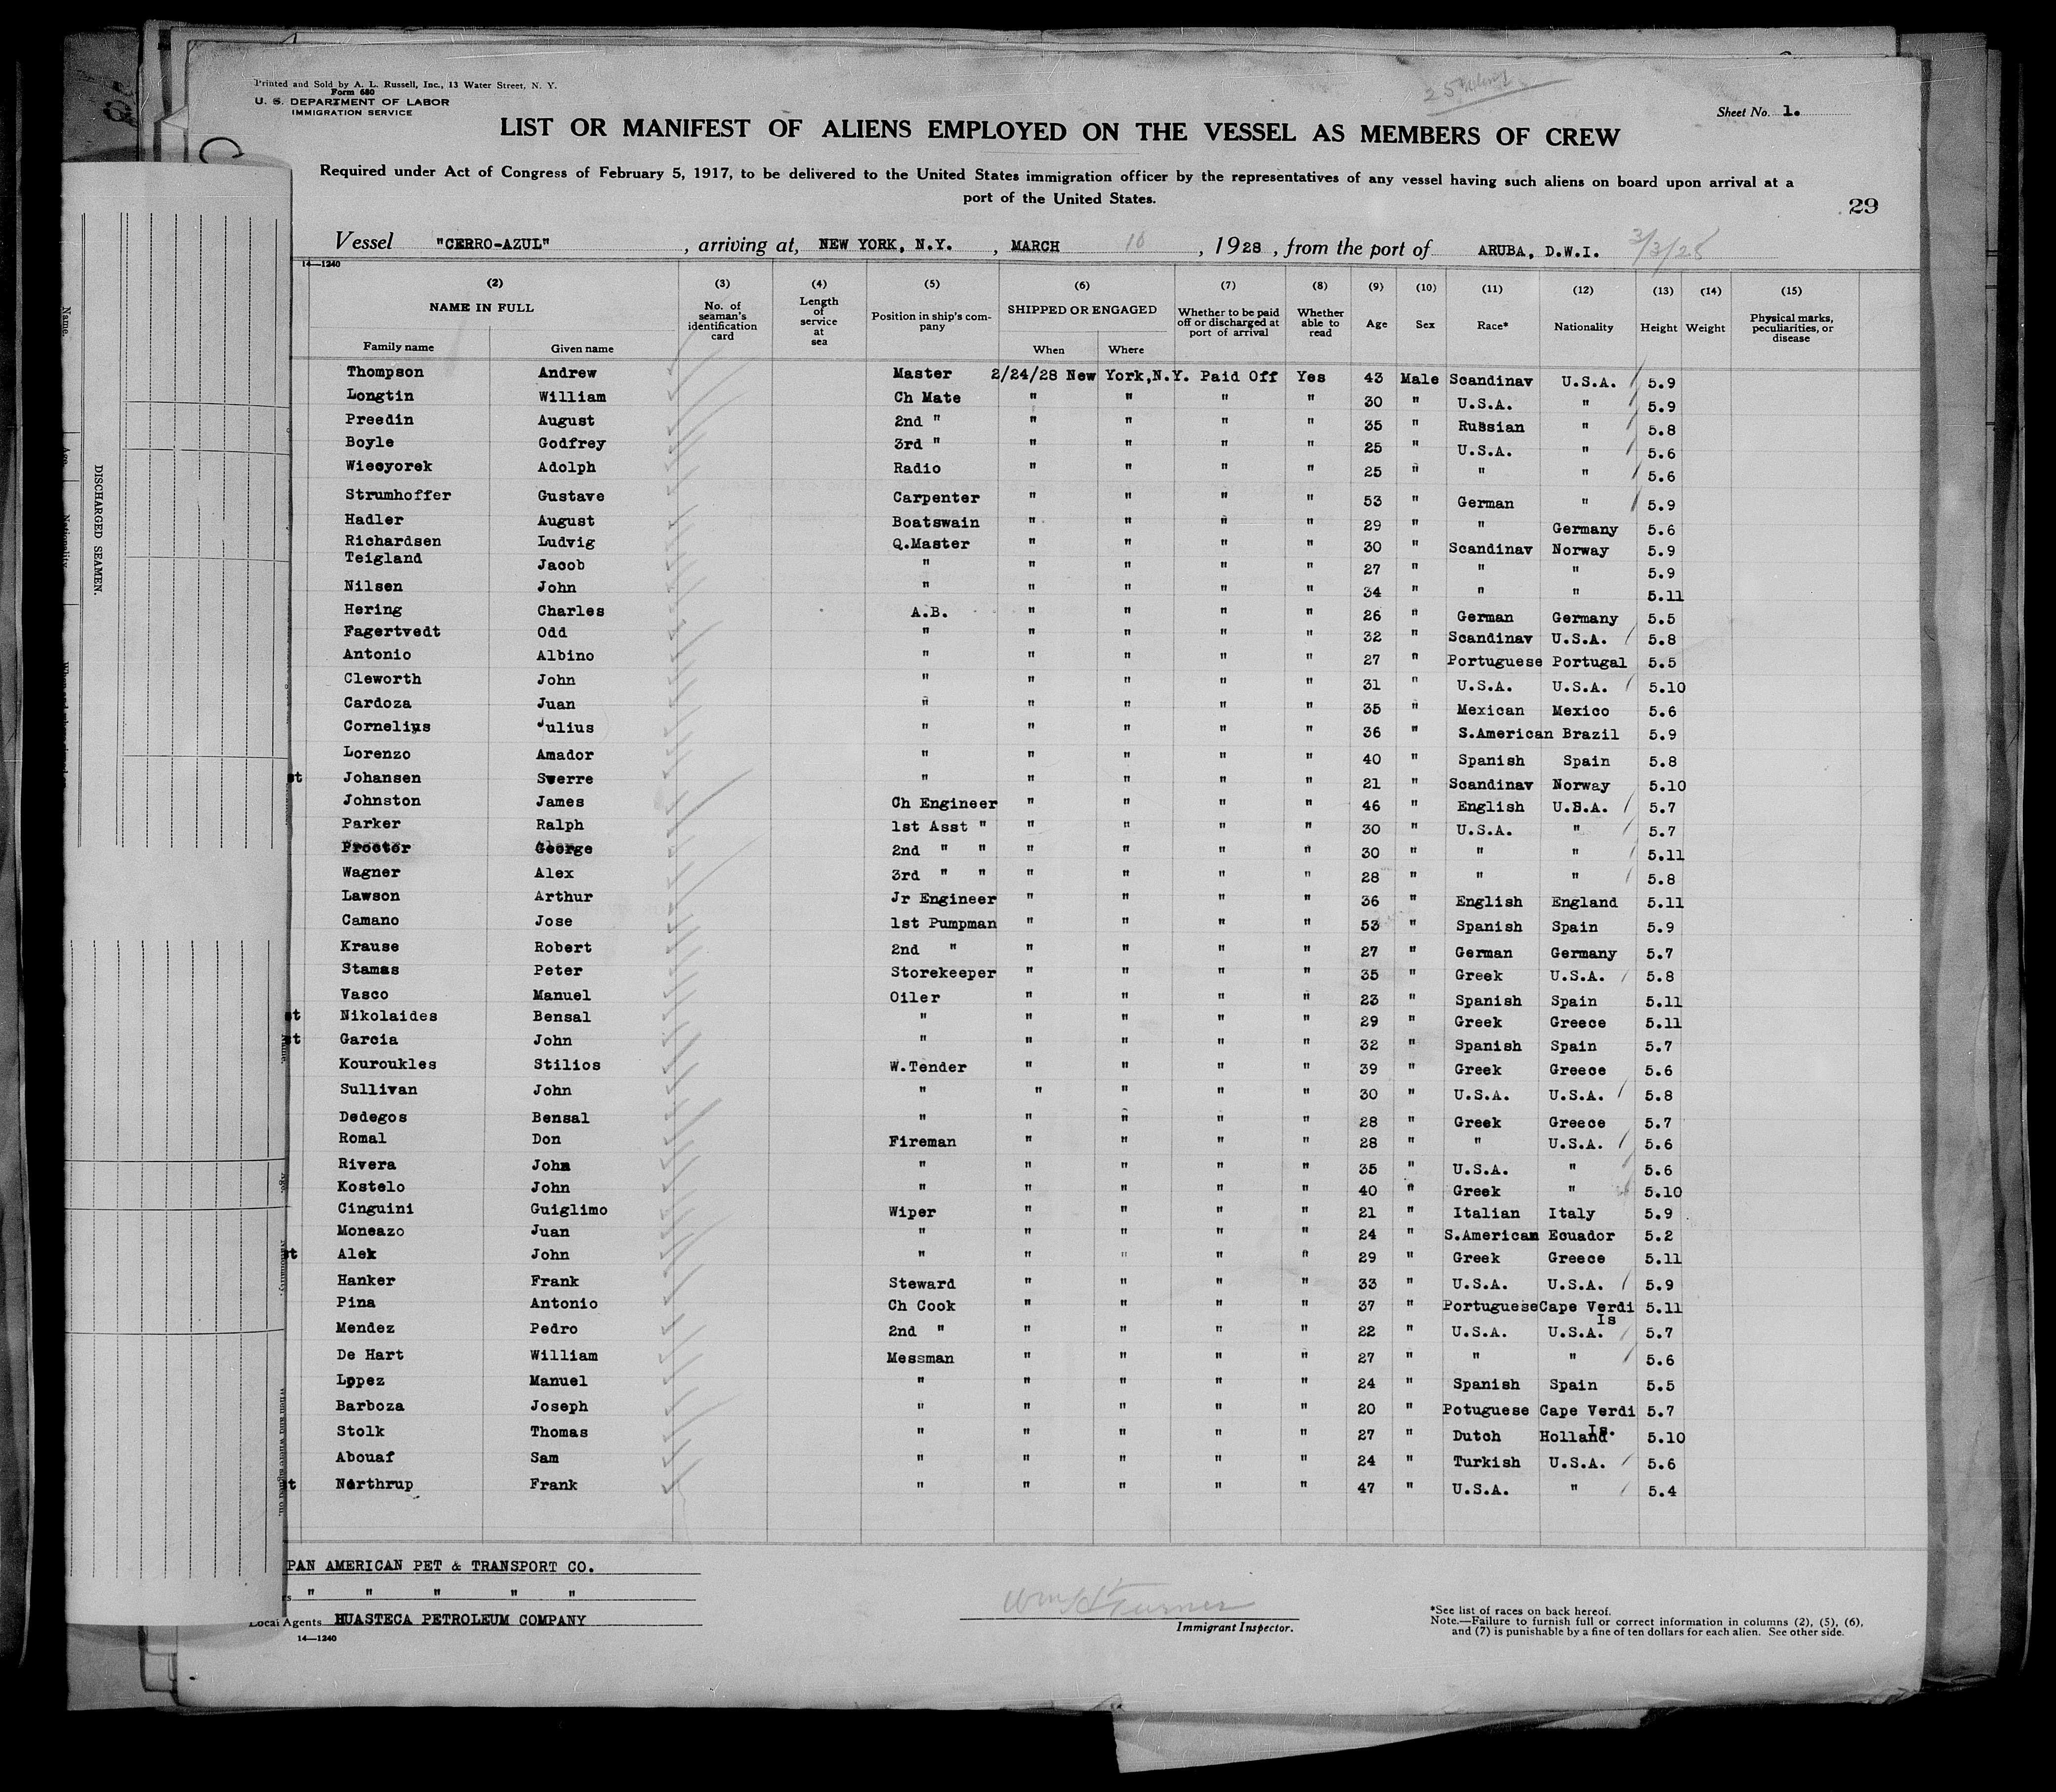 Printed and Sold by A. L. Russell, Inc., 13 Water Street, N. Y.
Form 680
U. S. DEPARTMENT OF LABOR
IMMIGRATION SERVICE
Sheet No. 1.
LIST OR MANIFEST OF ALIENS EMPLOYED ON THE VESSEL AS MEMBERS OF CREW
Required under Act of Congress of February 5, 1917, to be delivered to the United States immigration officer by the representatives of any vessel having such aliens on board upon arrival at a
port of the United States.
29
Vessel "CERRO-AZUL", arriving at, NEW YORK, N.Y., MARCH 10, 1928, from the port of ARUBA, D.W.I. 3/3/28
14—1240
(2) (3) (4) (5) (6) (7) (8) (9) (10) (11) (12) (13) (14) (15)
NAME IN FULL No. of seaman's identification card Length of service at sea Position in ship's company SHIPPED OR ENGAGED Whether to be paid off or discharged at port of arrival Whether able to read Age Sex Race* Nationality Height Weight Physical marks, peculiarities, or disease
Family name Given name When Where
Thompson Andrew Master 2/24/28 New York,N.Y. Paid Off Yes 43 Male Scandinav U.S.A. 5.9
Longtin William Ch Mate " " " " 30 " U.S.A. " 5.9
Preedin August 2nd " " " " " 35 " Russian " 5.8
Boyle Godfrey 3rd " " " " " 25 " U.S.A. " 5.6
Wiecyorek Adolph Radio " " " " 25 " " " 5.6
Strumhoffer Gustave Carpenter " " " " 53 " German " 5.9
Hadler August Boatswain " " " " 29 " " Germany 5.6
Richardsen Ludvig Q.Master " " " " 30 " Scandinav Norway 5.9
Teigland Jacob " " " " " 27 " " " 5.9
Nilsen John " " " " " 34 " " " 5.11
Hering Charles A.B. " " " " 26 " German Germany 5.5
Fagertvedt Odd " " " " " 32 " Scandinav U.S.A. 5.8
Antonio Albino " " " " " 27 " Portuguese Portugal 5.5
Cleworth John " " " " " 31 " U.S.A. U.S.A. 5.10
Cardoza Juan " " " " " 35 " Mexican Mexico 5.6
Cornelius Julius " " " " " 36 " S.American Brazil 5.9
Lorenzo Amador " " " " " 40 " Spanish Spain 5.8
st Johansen Swerre " " " " " 21 " Scandinav Norway 5.10
Johnston James Ch Engineer " " " " 46 " English U.S.A. 5.7
Parker Ralph 1st Asst " " " " " 30 " U.S.A. " 5.7
Proctor George 2nd " " " " " " 30 " " " 5.11
Wagner Alex 3rd " " " " " " 28 " " " 5.8
Lawson Arthur Jr Engineer " " " " 36 " English England 5.11
Camano Jose 1st Pumpman " " " " 53 " Spanish Spain 5.9
Krause Robert 2nd " " " " " 27 " German Germany 5.7
Stamas Peter Storekeeper " " " " 35 " Greek U.S.A. 5.8
Vasco Manuel Oiler " " " " 23 " Spanish Spain 5.11
st Nikolaides Bensal " " " " " 29 " Greek Greece 5.11
st Garcia John " " " " " 32 " Spanish Spain 5.7
Kouroukles Stilios W.Tender " " " " 39 " Greek Greece 5.6
Sullivan John " " " " " 30 " U.S.A. U.S.A. 5.8
Dedegos Bensal " " " " " 28 " Greek Greece 5.7
Romal Don Fireman " " " " 28 " " U.S.A. 5.6
Rivera John " " " " " 35 " U.S.A. " 5.6
Kostelo John " " " " " 40 " Greek " 5.10
Cinguini Guiglimo Wiper " " " " 21 " Italian Italy 5.9
Moneazo Juan " " " " " 24 " S.American Ecuador 5.2
st Alek John " " " " " 29 " Greek Greece 5.11
Hanker Frank Steward " " " " 33 " U.S.A. U.S.A. 5.9
Pina Antonio Ch Cook " " " " 37 " Portuguese Cape Verdi Is 5.11
Mendez Pedro 2nd " " " " " 22 " U.S.A. U.S.A. 5.7
De Hart William Messman " " " " 27 " " " 5.6
Lopez Manuel " " " " " 24 " Spanish Spain 5.5
Barboza Joseph " " " " " 20 " Potuguese Cape Verdi Is. 5.7
Stolk Thomas " " " " " 27 " Dutch Holland 5.10
Abouaf Sam " " " " " 24 " Turkish U.S.A. 5.6
st Northrup Frank " " " " " 47 " U.S.A. " 5.4
PAN AMERICAN PET & TRANSPORT CO.
" " " " "
Local Agents HUASTECA PETROLEUM COMPANY
14—1240
Wm H Turner
Immigrant Inspector.
*See list of races on back hereof.
Note.—Failure to furnish full or correct information in columns (2), (5), (6),
and (7) is punishable by a fine of ten dollars for each alien. See other side.
DISCHARGED SEAMEN.
Name.
Age.
Nationality.